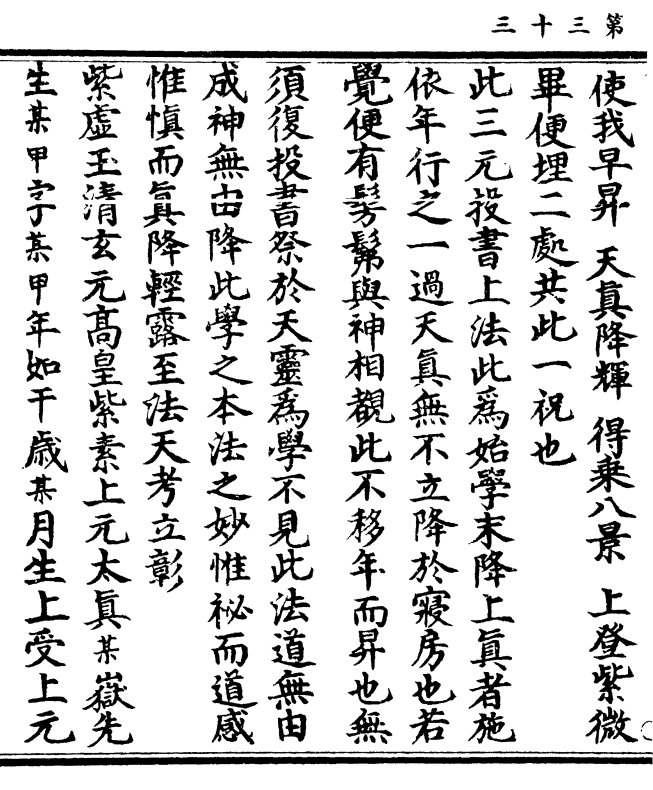 第三十三
使我早昇　天真降輝　得乗八景　上登紫微
畢便埋二處共此一祝也
此三元投書上法此爲始學末降上真者施
依年行之一過天真無不立降於寢房也若
覺便有髣髴與神相覩此不移年而昇也無
須復投書祭於天靈爲學不見此法道無由
成神無由降此學之本法之妙惟祕而道感
惟慎而真降輕露至法天考立彰
紫虛玉清玄元高皇紫素上元太真某嶽先
生某甲字某甲年如干歳某月生上受上元